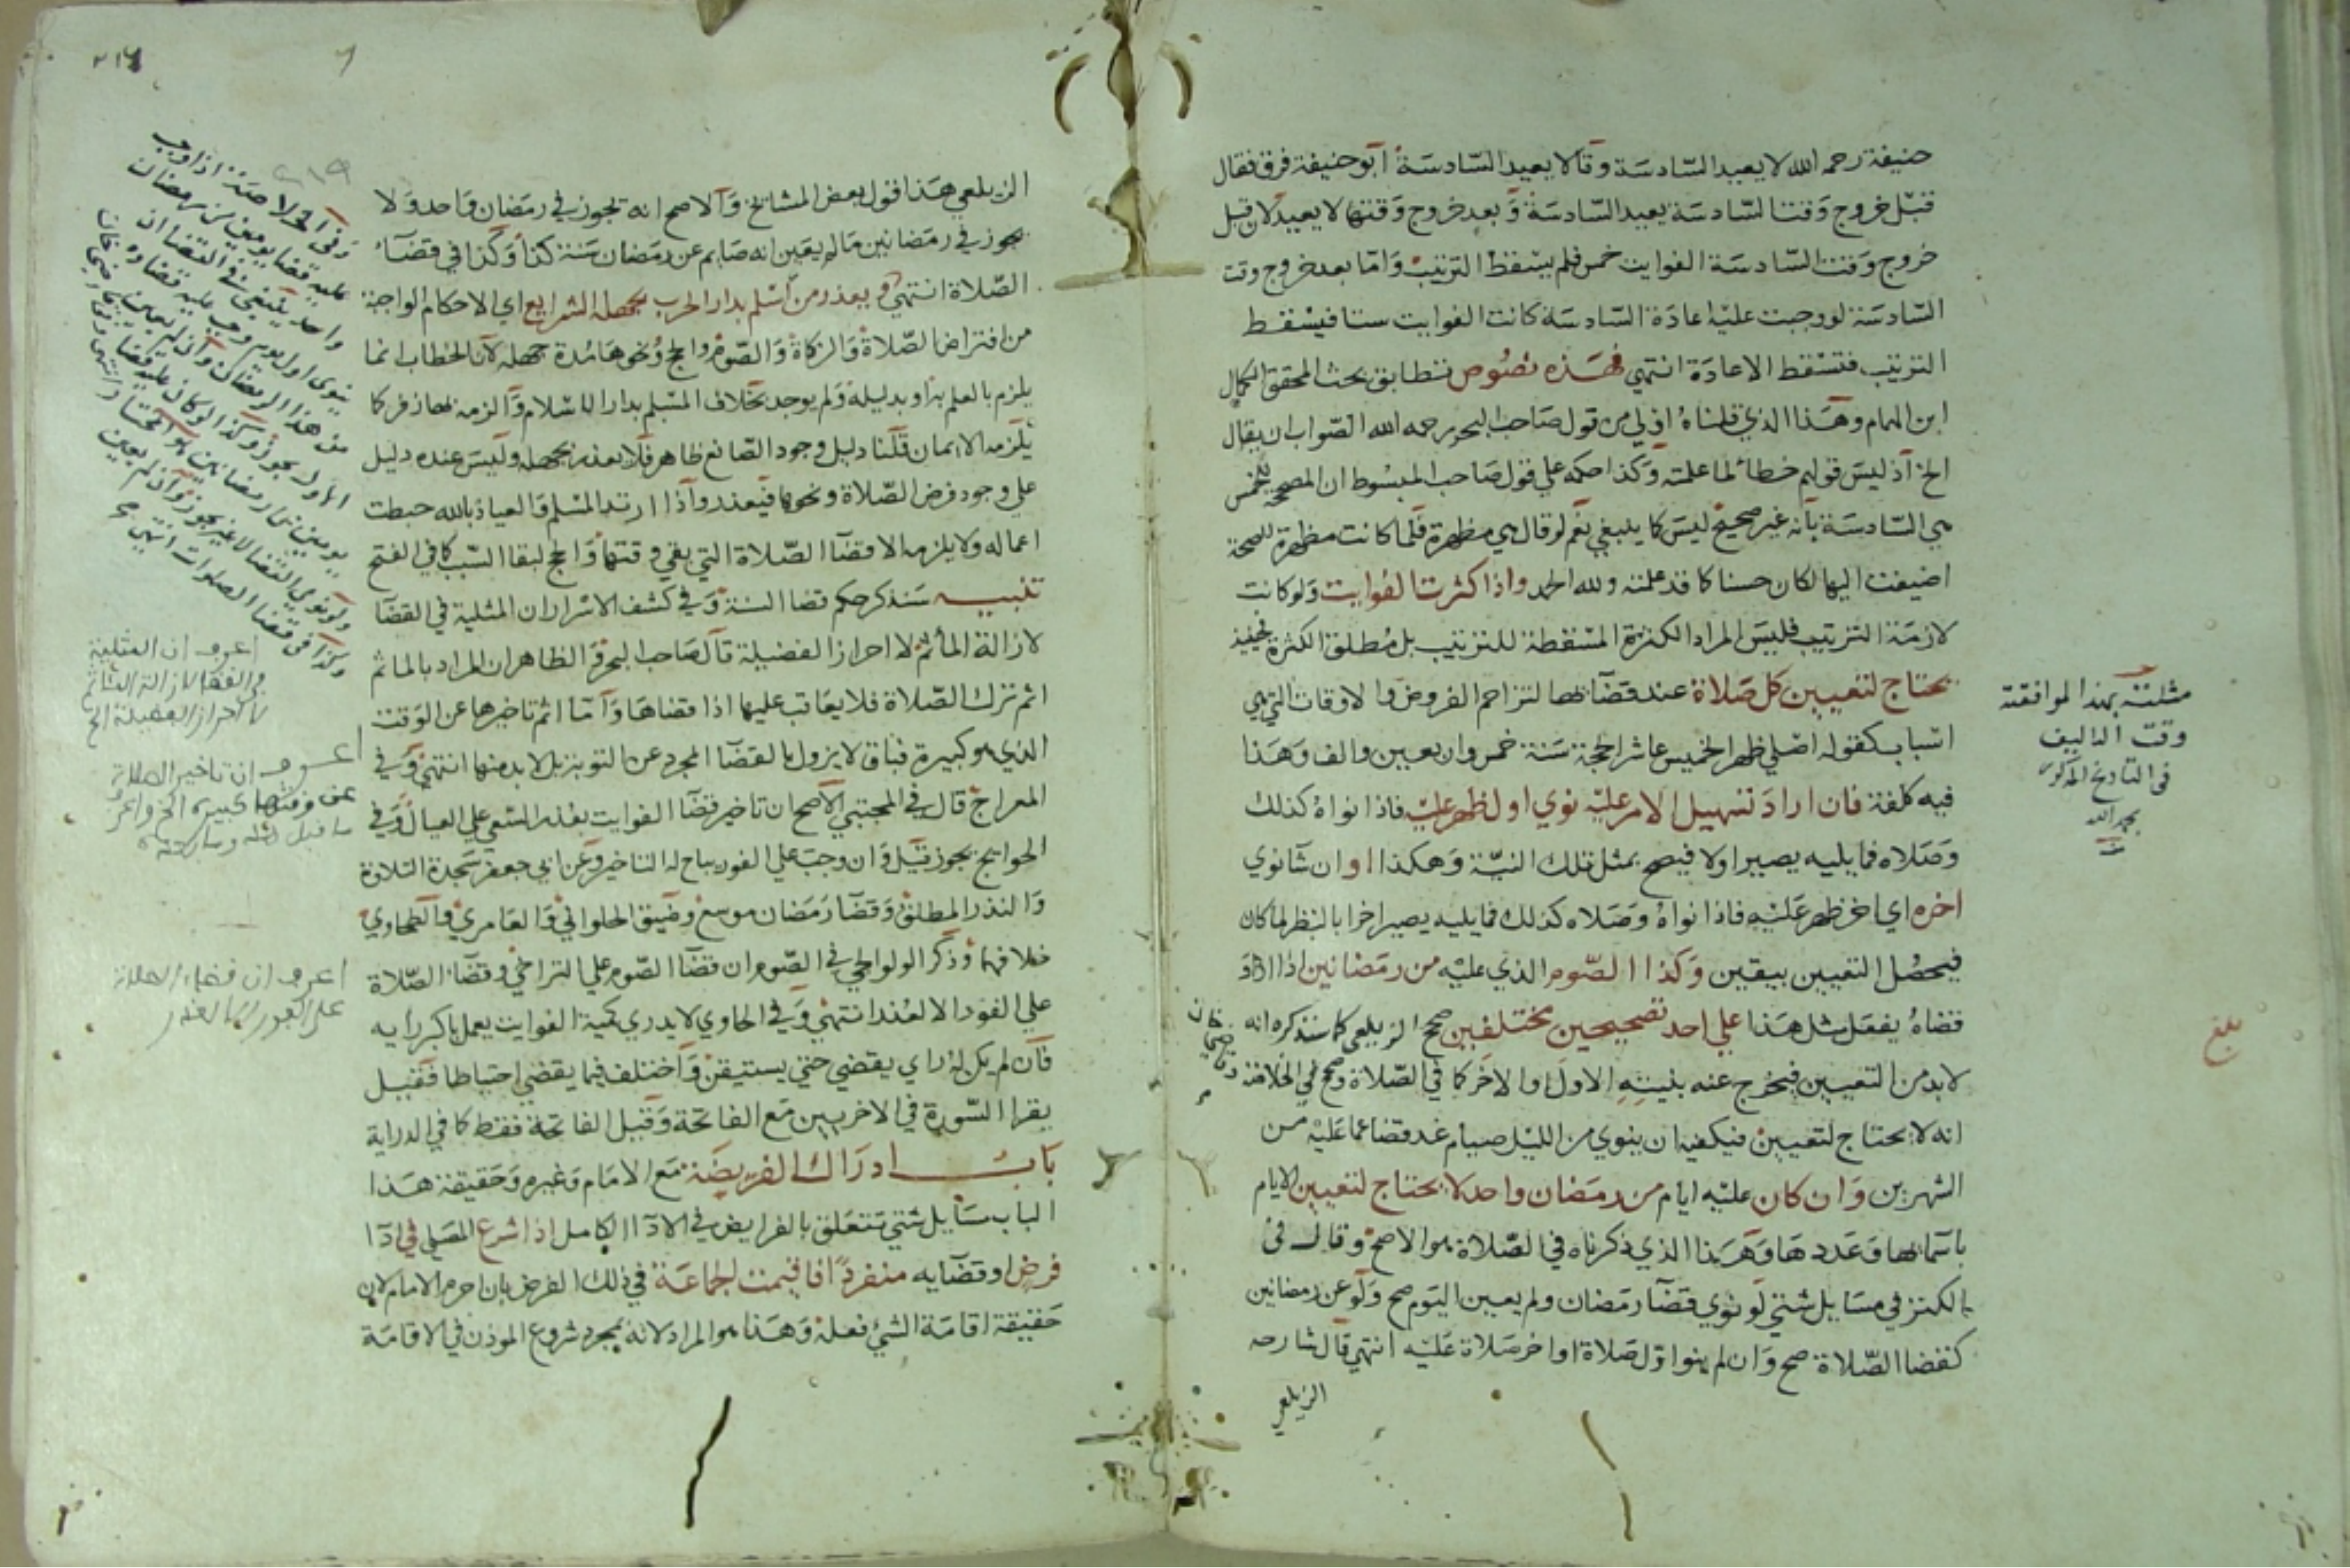 حنيفة رحمه الله لا يعيد السادسة وقالا يعيد السادسة أبو حنيفة فرق فقال
قبل خروج وقت السادسة يعيد السادسة وبعد خروج وقتها لا يعيد لان قبل
خروج وقت السادسة الفوايت خمس فلم يسقط الترتيب واما بعد خروج وقت
السادسة لو وجبت عليه اعادة السادسة كانت الفوايت ستا فيسقط
الترتيب فتسقط الاعادة انتهي فهذه نصوص تطابق بحث المحقق الكمال
ابن الهمام وهذا الذي قلناه اولي من قول صاحب البحر رحمه الله الصواب ان يقال
الخ اذ ليس قولهم خطأ لما علمته وكذا حكمه علي قول صاحب المبسوط ان المصححة للخمس
هي السادسة بانه غير صحيح ليس كما ينبغي نعم لو قال هي مظهرة فلما كانت مظهرة للصحة
اضيفت اليها لكان حسنا كما قد علمته ولله الحمد واذا كثرت الفوايت ولو كانت
لازمة الترتيب فليس المراد الكثرة المسقطة للترتيب بل مطلق الكثرة فحينئذ
يحتاج لتعيين كل صلاة عند قضائها لتزاحم الفروض والاوقات التي هي
اسباب كقوله اصلي ظهر الخميس عاشر الحجة سنة خمس واربعين والف وهذا
فيه كلفة فان اراد تسهيل الامر عليه نوي اول ظهر عليه فاذا نواه كذلك
وصلاه فما يليه يصير اولا فيصح بمثل تلك النية وهكذا او ان شا نوي
اخره اي اخر ظهر عليه فاذا نواه وصلاه كذلك فما يليه يصير اخرا بالنظر لما كان
فيحصل التعيين بيقين وكذا الصوم الذي عليه من رمضانين اذا اراد
قضاه يفعل مثل هذا علي احد تصحيحين مختلفين صحح الزيلعي كما سنذكره انه
لابد من التعيين فيخرج عنه بنيته الاول او الاخر كما في الصلاة وصحح في الخلاصة
وقاضي خان
انه لا يحتاج لتعيين فيكفيه ان ينوي من الليل صيام غد قضا عما عليه من
الشهرين وان كان عليه ايام من رمضان واحد لا يحتاج لتعيين الايام
باسمائها وعددها وهذا الذي ذكرناه في الصلاة هو الاصح وقال في
الكنز في مسايل شتي لو نوي قضا رمضان ولم يعين اليوم صح ولو عن رمضانين
كقضا الصلاة صح وان لم ينو اول صلاة او اخر صلاة عليه انتهي قال شارحه
الزيلعي
مثلت بهذا لموافقته
وقت التاليف
في التاريخ المذكور
بحمد الله
بلغ
الزيلعي هذا قول بعض المشايخ والاصح انه يجوز في رمضان واحد ولا
يجوز في رمضانين ما لم يعين انه صايم عن رمضان سنة كذا وكذا في قضاء
الصلاة انتهي ويعذر من اسلم بدار الحرب بجهله الشرايع اي الاحكام الواجبة
من افتراض الصلاة والزكاة والصوم والحج ونحوها مدة جهله لان الخطاب انما
يلزم بالعلم به او بدليله ولم يوجد بخلاف المسلم بدار الاسلام والزمه بها زفر كما
يلزمه الايمان قلنا دليل وجود الصانع ظاهر فلا يعذر بجهله وليس عنده دليل
علي وجود فرض الصلاة ونحوها فيعذر واذا ارتد المسلم والعياذ بالله حبطت
اعماله ولا يلزمه الا قضا الصلاة التي بقي وقتها والحج لبقا السبب كما في الفتح
تنبيه سنذكر حكم قضا السنة وفي كشف الاسرار ان المثلية في القضا
لازالة المأثم لا احراز الفضيلة قال صاحب البحر الظاهر ان المراد بالماثم
اثم ترك الصلاة فلا يعاقب عليها اذا قضاها واما اثم تاخيرها عن الوقت
الذي هو كبيرة فباق لا يزول بالقضا المجرد عن التوبة بل لابد منها انتهي وفي
المعراج قال في المجتبي الاصح ان تاخير قضا الفوايت بعذر السعي علي العيال وفي
الحوايج يجوز قيل وان وجب علي الفور يباح له التاخير وعن ابي جعفر سجدة التلاوة
والنذر المطلق وقضا رمضان موسع وضيق الحلواني والعامري والطحاوي
خلافهما وذكر الولوالجي في الصوم ان قضا الصوم علي التراخي وقضاء الصلاة
علي الفور الا لعذر انتهي وفي الحاوي لا يدري كمية الفوايت يعمل باكبر رأيه
فان لم يكن له راي يقضي حتي يستيقن واختلف فيما يقضي احتياطا فقيل
يقرا السورة في الاخريين مع الفاتحة وقيل الفاتحة فقط كما في الدراية
باب ادراك الفريضة مع الامام وغيره وحقيقة هذا
الباب مسايل شتي تتعلق بالفرايض في الادا الكامل اذا شرع المصلي في ادا
فرض او قضايه منفردا فاقيمت الجماعة في ذلك الفرض بان احرم الامام لان
حقيقة اقامة الشي فعله وهذا هو المراد لانه بمجرد شروع الموذن في الاقامة
وفي الخلاصة اذا وجب
عليه قضا يومين من رمضان
واحد ينبغي في القضا ان
ينوي اول يوم وجب عليه قضاوه
من هذا الرمضان وان لم يعين
الاول يجوز وكذا لو كان عليه قضا
يومين من رمضانين هو المختار
ولو نوي القضا لا غير يجوز وان لم يعين
وكذا في قضا الصلوات انتهي
اعرف ان المثلية
في القضا لازالة المآثم
لا احراز الفضيلة الخ
اعرف ان تاخير الصلاة
عن وقتها كبيرة الخ واعرف
ما قبل هذه
اعرف ان قضاء الصلاة
على الفور الا لعذر
٢١٩